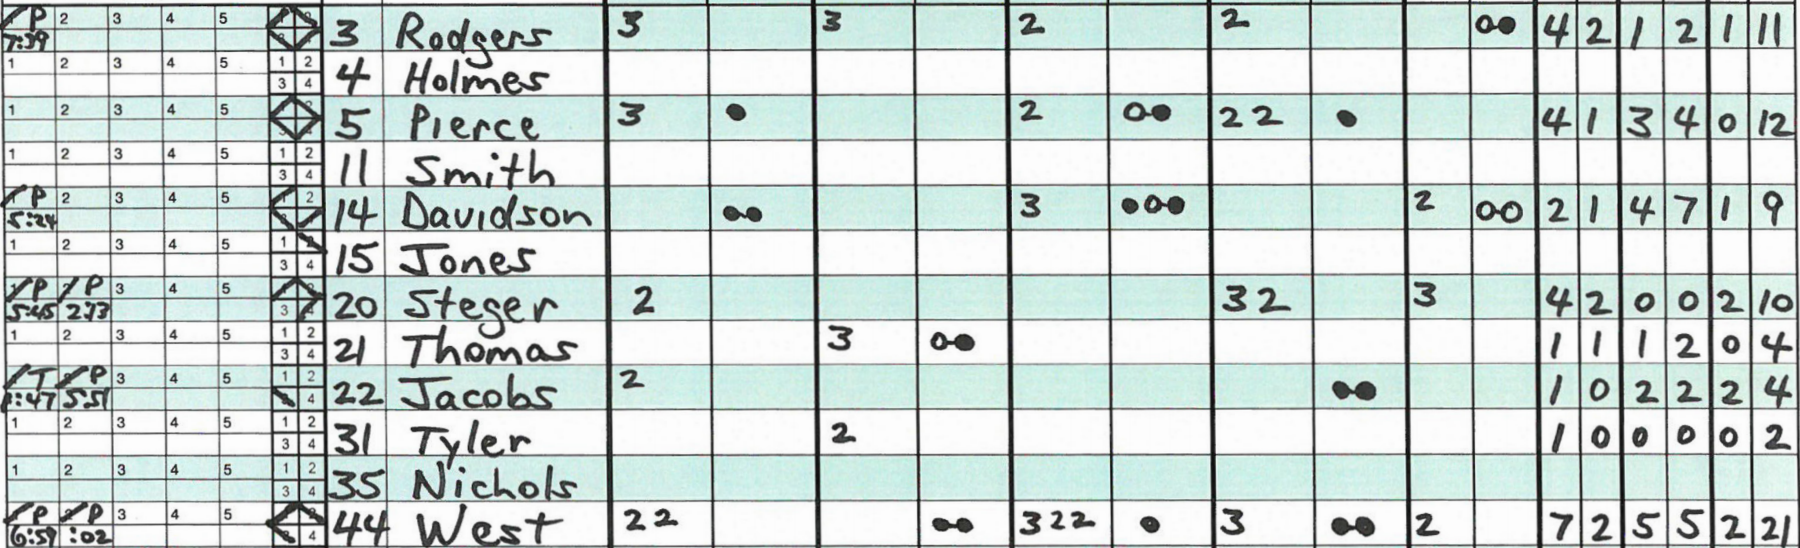 P 2 3 4 5 3 Rodgers 3 3 2 2 4 2 1 2 1 11
7:39
1 2 3 4 5 1 2 3 4 4 Holmes
1 2 3 4 5 5 Pierce 3 2 22 4 1 3 4 0 12
1 2 3 4 5 1 2 3 4 11 Smith
P 2 3 4 5 2 14 Davidson 3 2 2 1 4 7 1 9
5:24
1 2 3 4 5 1 3 4 15 Jones
P P 3 4 5 3 20 Steger 2 32 3 4 2 0 0 2 10
5:45 2:13
1 2 3 4 5 1 2 3 4 21 Thomas 3 1 1 1 2 0 4
T P 3 4 5 1 2 4 22 Jacobs 2 1 0 2 2 2 4
1:47 5:51
1 2 3 4 5 1 2 3 4 31 Tyler 2 1 0 0 0 0 2
1 2 3 4 5 1 2 3 4 35 Nichols
P P 3 4 5 4 44 West 22 322 3 2 7 2 5 5 2 21
6:59 :02